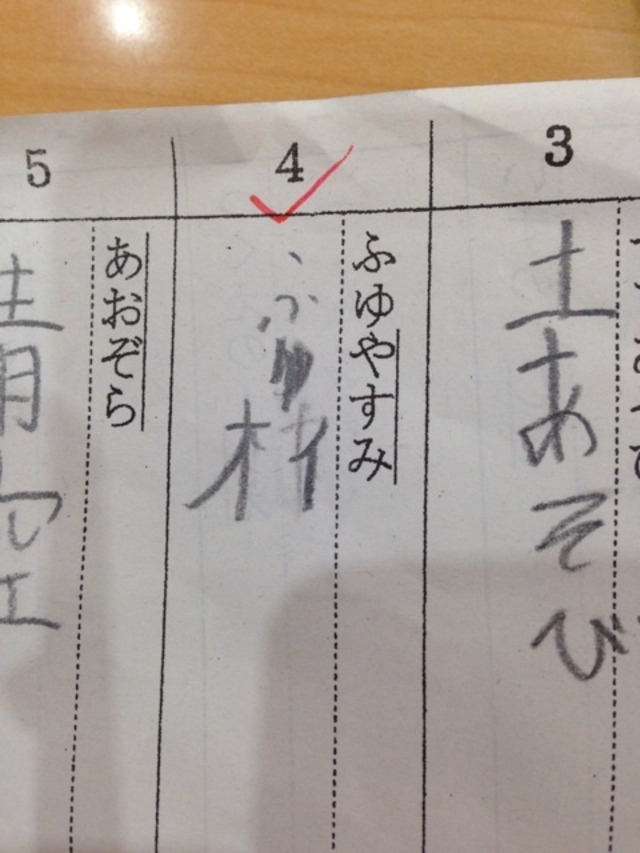 3
土あそび
4
ふゆやすみ
ふゆ木イ
5
あおぞら
青空